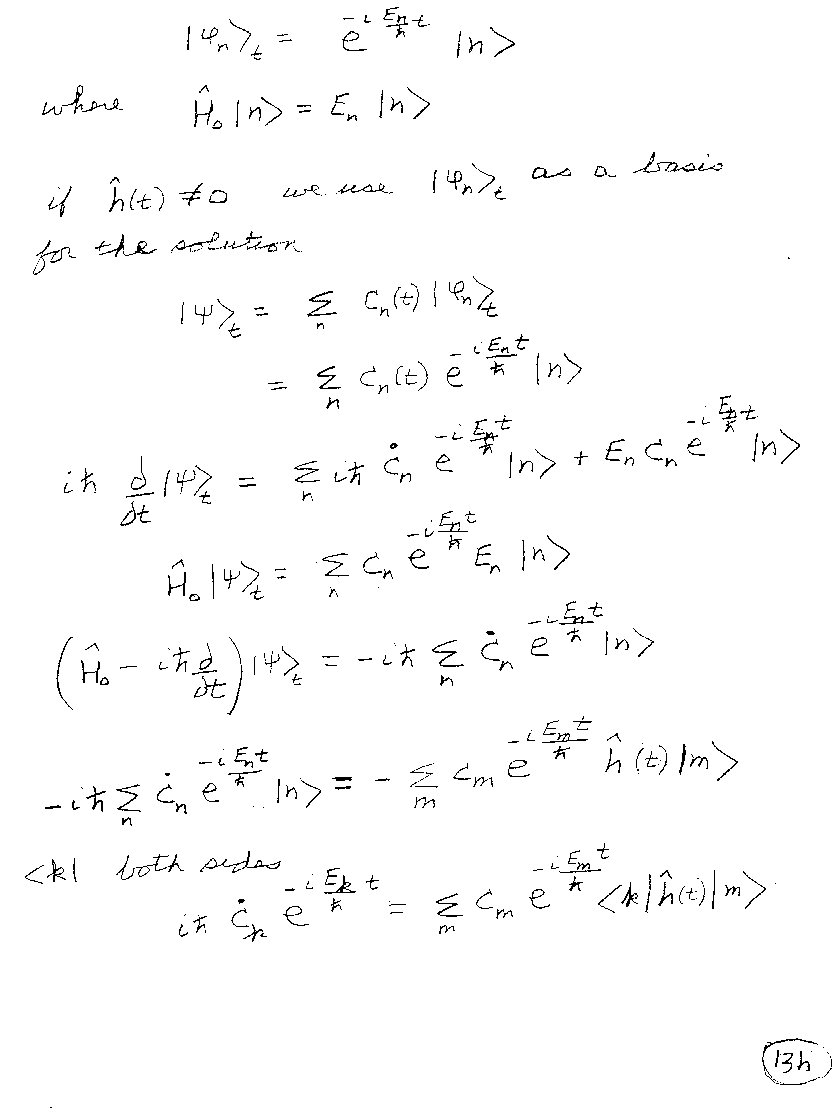 |φₙ⟩ₜ = e^{-i Eₙ/ħ t} |n⟩
where Ĥ₀|n⟩ = Eₙ |n⟩
if ĥ(t) ≠ 0 we use |φₙ⟩ₜ as a basis
for the solution
|Ψ⟩ₜ = Σₙ Cₙ(t) |φₙ⟩ₜ
= Σₙ Cₙ(t) e^{-i Eₙt/ħ} |n⟩
iħ d/dt |Ψ⟩ₜ = Σₙ iħ Ċₙ e^{-i Eₙt/ħ} |n⟩ + Eₙ Cₙ e^{-i Eₙt/ħ} |n⟩
Ĥ₀|Ψ⟩ₜ = Σₙ Cₙ e^{-i Eₙt/ħ} Eₙ |n⟩
(Ĥ₀ - iħ d/dt)|Ψ⟩ₜ = -iħ Σₙ Ċₙ e^{-i Eₙt/ħ} |n⟩
-iħ Σₙ Ċₙ e^{-i Eₙt/ħ} |n⟩ = - Σₘ Cₘ e^{-i Eₘt/ħ} ĥ(t) |m⟩
<k| both sides
iħ Ċₖ e^{-i Eₖ/ħ t} = Σₘ Cₘ e^{-i Eₘt/ħ} <k|ĥ(t)|m>
13h